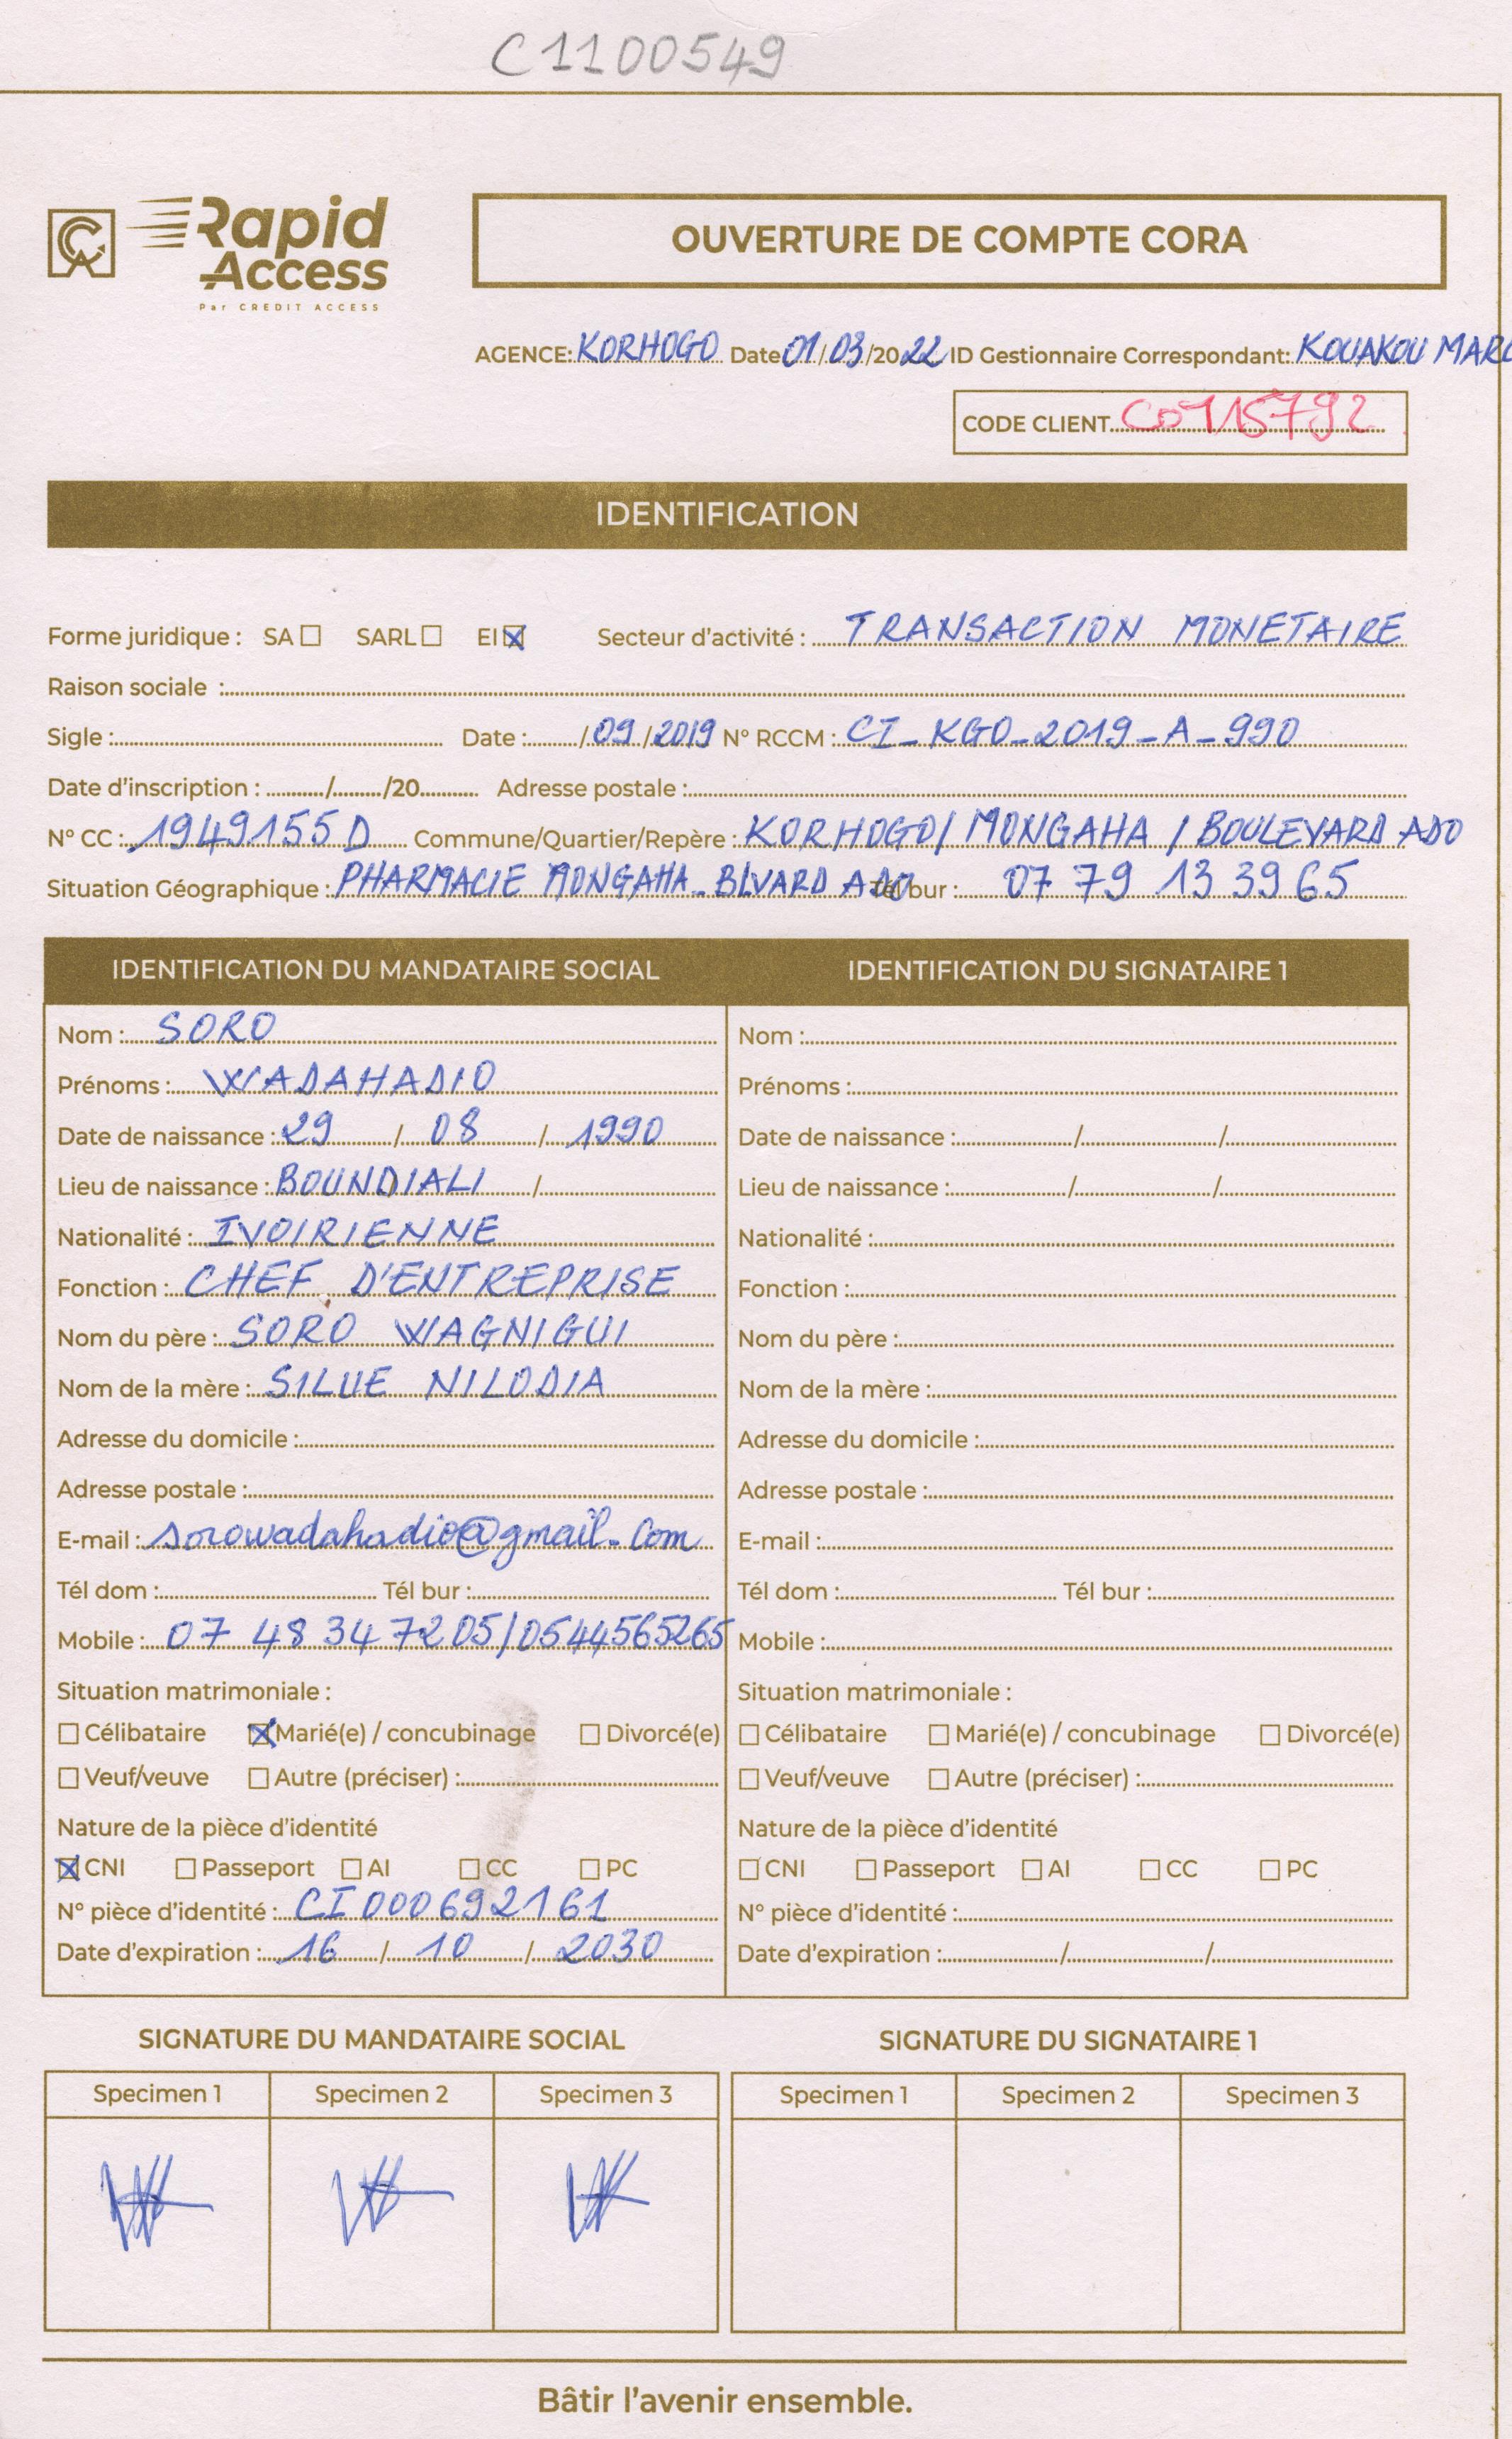 C1100549
Rapid
Access
Par CREDIT ACCESS
OUVERTURE DE COMPTE CORA
AGENCE: KORHOGO Date 01/03/2022 ID Gestionnaire Correspondant: KOUAKOU MARC
CODE CLIENT C0115792
IDENTIFICATION
Forme juridique : SA ☐ SARL ☐ EI ☒ Secteur d'activité : TRANSACTION MONETAIRE
Raison sociale :
Sigle : Date : /09/2019 N° RCCM : CI_KGO_2019_A_990
Date d'inscription : / /20 Adresse postale :
N° CC : 1949155 D Commune/Quartier/Repère : KORHOGO/ MONGAHA / BOULEVARD ADO
Situation Géographique : PHARMACIE MONGAHA_BLVARD ADO Tél bur : 07 79 13 39 65
IDENTIFICATION DU MANDATAIRE SOCIAL IDENTIFICATION DU SIGNATAIRE 1
Nom : SORO Nom :
Prénoms : WADAHADIO Prénoms :
Date de naissance : 29 / 08 / 1990 Date de naissance : / /
Lieu de naissance : BOUNDIALI / Lieu de naissance : / /
Nationalité : IVOIRIENNE Nationalité :
Fonction : CHEF D'ENTREPRISE Fonction :
Nom du père : SORO WAGNIGUI Nom du père :
Nom de la mère : SILUE NILODIA Nom de la mère :
Adresse du domicile : Adresse du domicile :
Adresse postale : Adresse postale :
E-mail : sorowadahadio@gmail.com E-mail :
Tél dom : Tél bur : Tél dom : Tél bur :
Mobile : 07 48 34 72 05/0544565265 Mobile :
Situation matrimoniale : Situation matrimoniale :
☐ Célibataire ☒ Marié(e) / concubinage ☐ Divorcé(e) ☐ Célibataire ☐ Marié(e) / concubinage ☐ Divorcé(e)
☐ Veuf/veuve ☐ Autre (préciser) : ☐ Veuf/veuve ☐ Autre (préciser) :
Nature de la pièce d'identité Nature de la pièce d'identité
☒ CNI ☐ Passeport ☐ AI ☐ CC ☐ PC ☐ CNI ☐ Passeport ☐ AI ☐ CC ☐ PC
N° pièce d'identité : CI 000692161 N° pièce d'identité :
Date d'expiration : 16 / 10 / 2030 Date d'expiration : / /
SIGNATURE DU MANDATAIRE SOCIAL SIGNATURE DU SIGNATAIRE 1
Specimen 1 Specimen 2 Specimen 3 Specimen 1 Specimen 2 Specimen 3
Bâtir l'avenir ensemble.